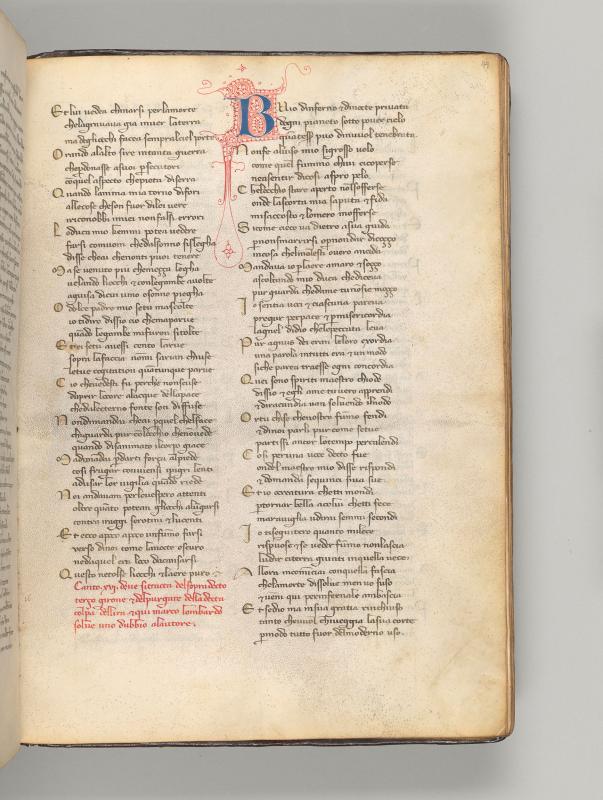 Et lui vedea chinarsi per lamorte
chelagravava gia inver laterra
ma degliocchi facea sempralciel porte
Orando alalto sire intanta guerra
cheperdonasse asuoi persecutori
coquel aspecto chepieta diserra
Quando lanima mia torno difori
allecose cheson fuor dilei vere
riconobbi imiei nonfalsi errori
Loduca mio kemmi potea vedere
farsi comuom chedalsonno sislegha
disse cheai chenonti puoi tenere
Mase venuto piu chemeçça legha
velando liocchi et conlegambe avolte
aguisa dicui vino osonno piegha
O dolce padre mio setu mascolte
io tidiro dissio cio chemaparve
quado legambe mifuron sitolte
Et ei setu avessi cento larve
sopra lafaccia nomi sarian chiuse
letue cogitation quantunque parve
Cio chevedesti fu perche nonscuse
daprir locore alacque dellapace
chedaletterno fonte son diffuse
Nondimandai cheai pquel chefface
chiguarda pur collocchio chenonvede
quando disanimato ilcorpo giace
Madimadai pdarti força alpiede
cosi frugar conviensi ipigri lenti
adusar lor vigilia quado riede
Noi andavam perlovespero attenti
oltre quanto potean gliocchi alugarsi
contra iraggi serotini et lucenti
Et ecco apoco apoco unfumo farsi
verso dinoi come lanocte oscuro
nedaquel era loco dacansarsi
Questo netolse liocchi et laere puro
Canto .xvj. dove sitracta delsopradecto
terço girone et delpurgare della decta
colpa dellira et qui marco lombardo
solve uno dubbio alautore.
Buio dinferno et dinocte privata
degni pianeto sotto povero cielo
quatesser puo dinuvol tenebrata
Nonfe alviso mio sigrosso velo
come quel fummo chivi cicoperse
neasentir dicosi aspro pelo
Chelocchio stare aperto nolsofferse
onde lascorta mia saputa et fida
misaccosto et lomero mofferse
Si come cieco va dietro asua guida
p nonsmarrirsi et p nondar dicoçço
incosa chelmolesti overo ancida
Mandava io placre amaro et soçço
ascoltando mio duca chediceva
pur guarda chedame tunosie moçço
Io sentia voci et ciascuna pareva
pregar perpace et p misericordia
lagnel didio chelepeccata leva
Pur agnus dei eran leloro exordia
una parola intutti era et un modo
siche parea traesse ogni concordia
Quei sono spiriti maestro chiodo
dissio et egli ame tuvero apprendi
et diracundia van solvendo ilnodo
Or tu chise chenostro fumo fendi
et dinoi parli pur come setue
partissi ancor lotempo percalendi
Cosi peruna voce decto fue
ondel maestro mio disse rispondi
et domanda sequinci siva sue
Et io o creatura chetti mondi
ptornar bella acolui chetti fece
maraviglia udirai semmi secondi
Io tiseguitero quanto milece
rispuose et se veder fumo nonlascia
ludir citerra giunti inquella vece
Allora incominciai conquella fascia
chelamorte dissolve menvo suso
et veni qui perinfernale ambascia
Et sedio ma insua gratia rinchiuso
tanto chevuol chiveggia lasua corte
pmodo tutto fuor delmoderno uso.